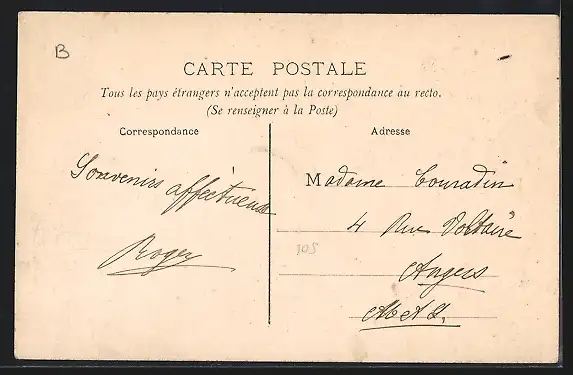 B
CARTE POSTALE
Tous les pays étrangers n'acceptent pas la correspondance au recto.
(Se renseigner à la Poste)
Correspondance
Souvenirs affectueux
Roger
Adresse
Madame Couradin
4 Rue Voltaire
Angers
M et L.
105